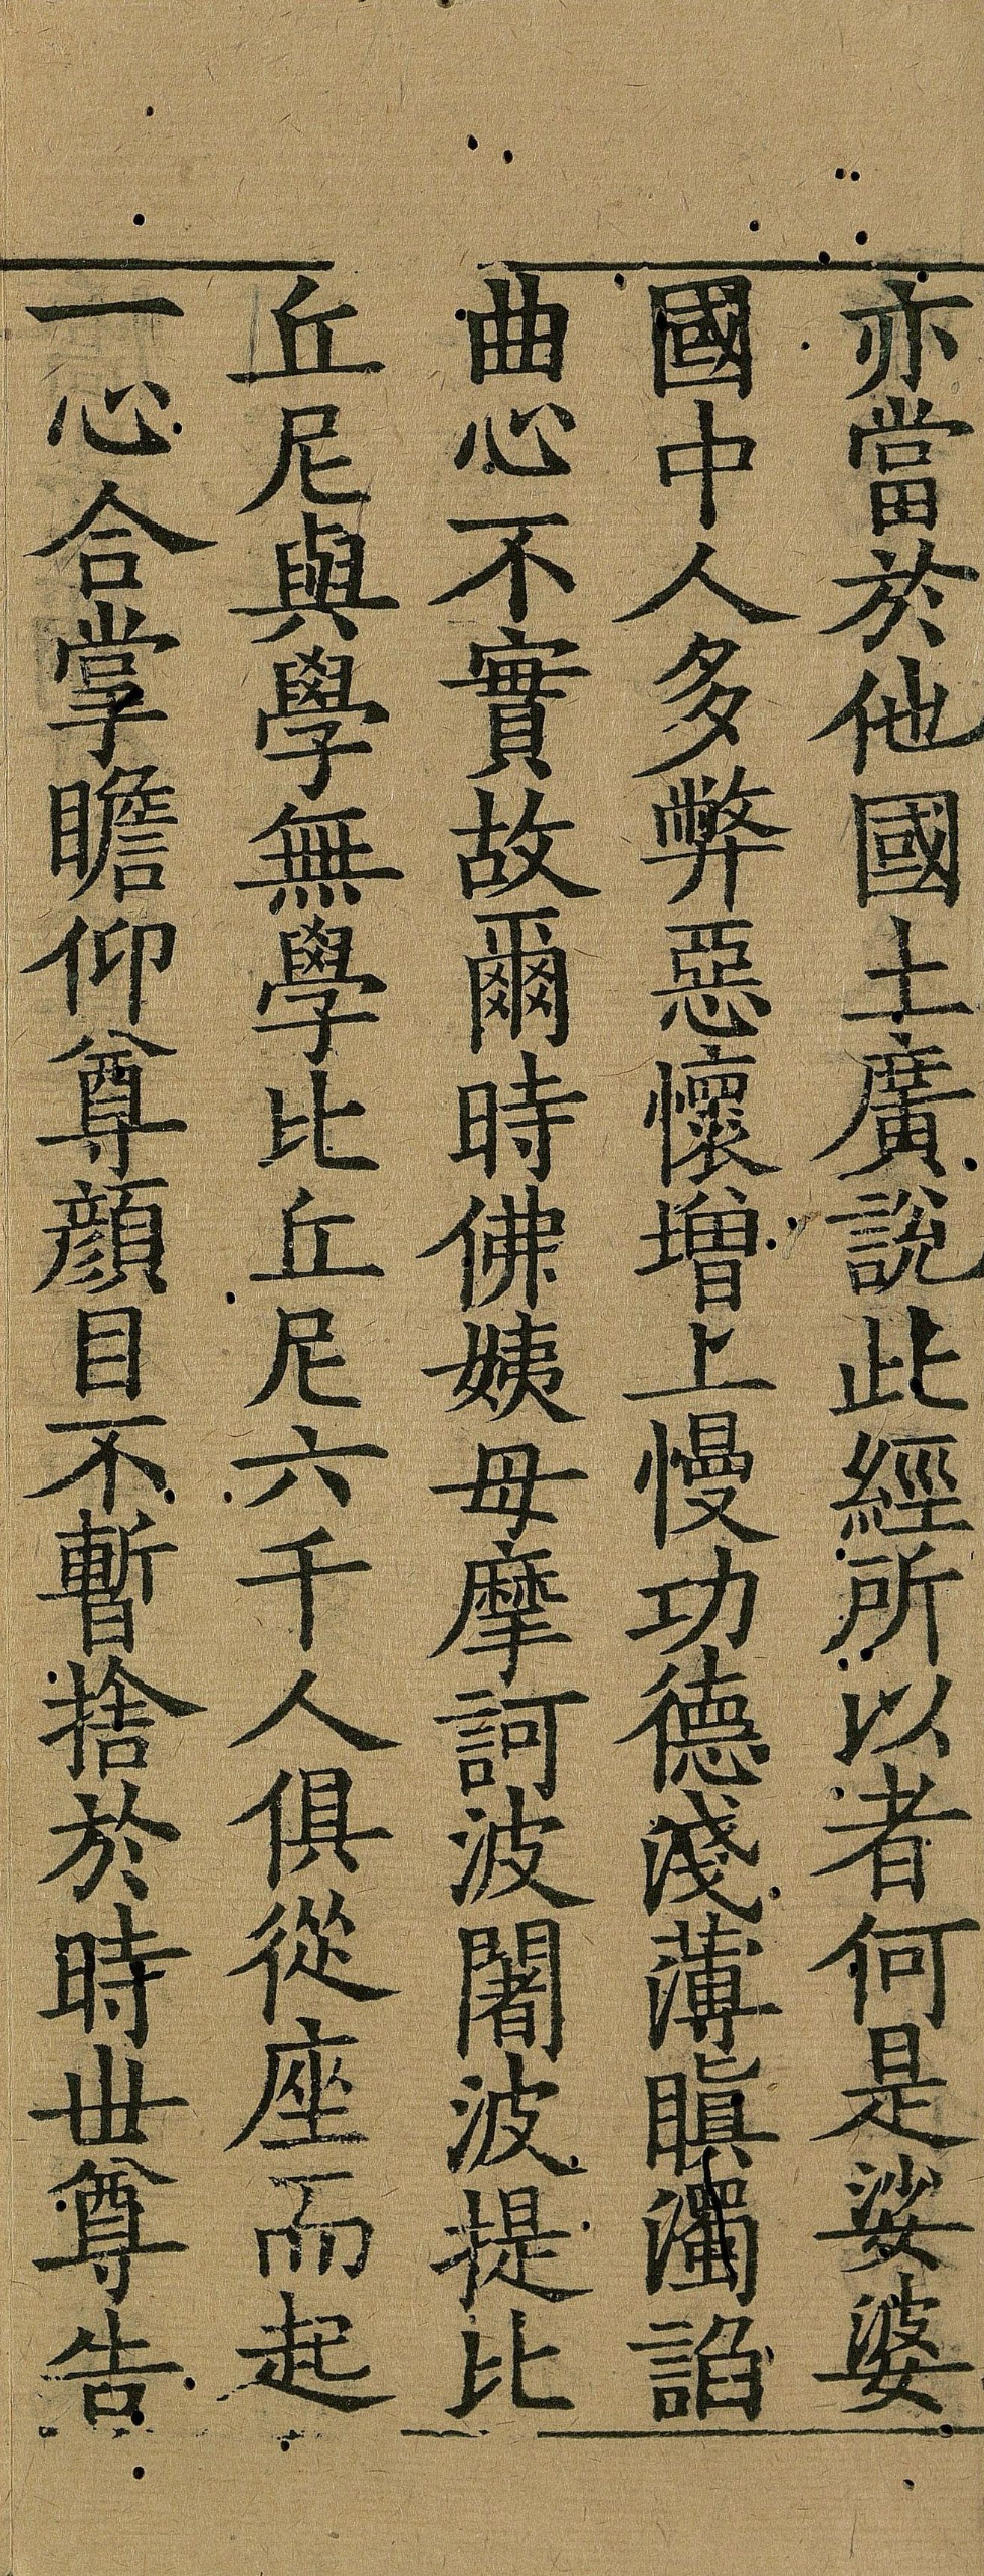 亦當於他國土廣說此經所以者何是娑婆
國中人多弊惡懷增上慢功德淺薄瞋濁諂
曲心不實故爾時佛姨母摩訶波闍波提比
丘尼與學無學比丘尼六千人俱從座而起
一心合掌瞻仰尊顏目不暫捨於時世尊告